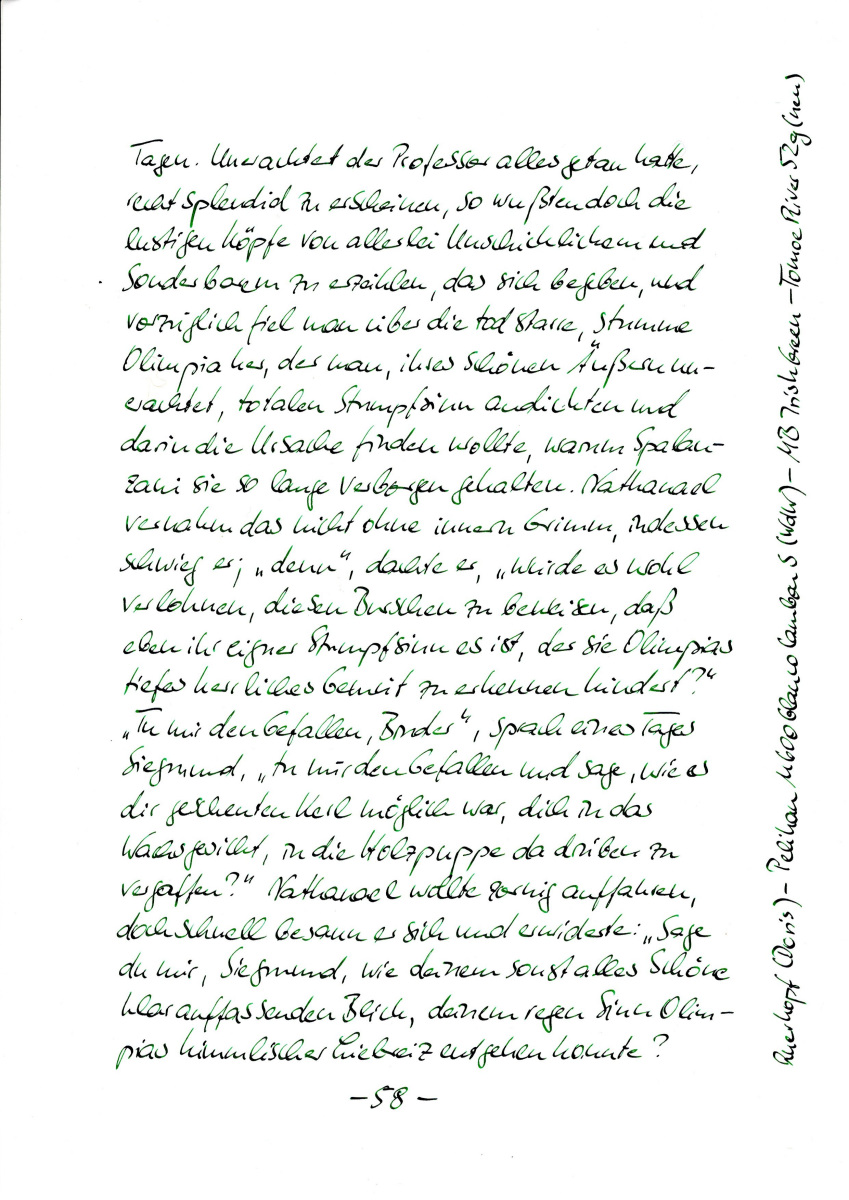 Tagen. Unerachtet der Professor alles getan hatte,
recht splendid zu erscheinen, so wußten doch die
lustigen Köpfe von allerlei Unschicklichem und
Sonderbarem zu erzählen, das sich begeben, und
vorzüglich fiel man über die todstarre, stumme
Olimpia her, der man, ihres schönen Äußern un-
erachtet, totalen Stumpfsinn andichten und
darin die Ursache finden wollte, warum Spalan-
zani sie so lange verborgen gehalten. Nathanael
vernahm das nicht ohne innern Grimm, indessen
schwieg er; „denn“, dachte er, „würde es wohl
verlohnen, diesen Burschen zu beweisen, daß
eben ihr eigner Stumpfsinn es ist, der sie Olimpias
tiefes herrliches Gemüt zu erkennen hindert?“
„Tu mir den Gefallen, Bruder“, sprach eines Tages
Siegmund, „tu mir den Gefallen und sage, wie es
dir gescheuten Kerl möglich war, dich in das
Wachsgesicht, in die Holzpuppe da drüben zu
vergaffen?“ Nathanael wollte zornig auffahren,
doch schnell besann er sich und erwiderte: „Sage
du mir, Siegmund, wie deinem sonst alles Schöne
klar auffassenden Blick, deinem regen Sinn Olim-
pias himmlischer Liebreiz entgehen konnte?
– 58 –
(Doris) – Pelikan M600 blanco (Wdh) – MB Irish Green – Tomoe River 52g (neu)